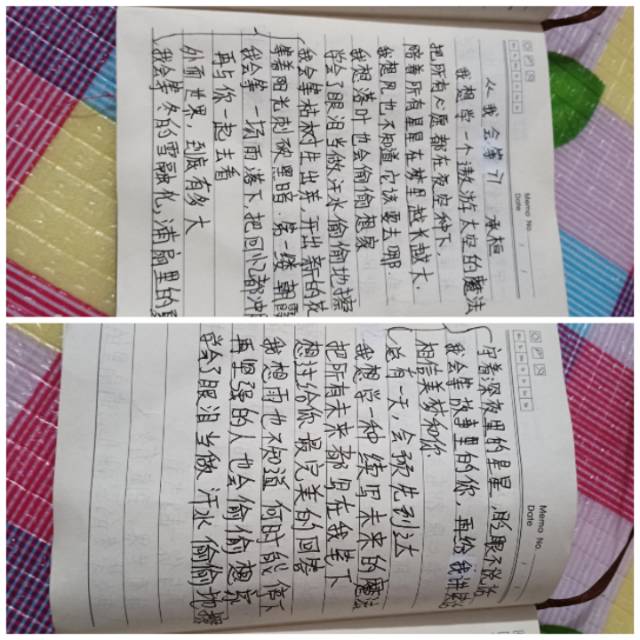 《我会等》 承桓
Memo No.
Date / /
我想学一个遨游太空的魔法
把所有心愿都在夜空种下,
陪着所有星星在梦里越长越大.
我想风也不知道它该要去哪
我想落叶也会偷偷想家
学会了眼泪当做汗水偷偷地擦
我会等枯树生出芽,开出新的花
等着阳光刺破黑暗 第一缕朝霞
我会等一场雨落下,把回忆都冲
再与你一起去看
外面世界,到底有多大
我会等 冬的雪融化,清晨里的
Memo No.
Date / /
守着深夜里的星星,眨眼不说话
我会等故事里的你,再给我讲
相信美梦和你
总有一天,会预先到达
我想学一种续写未来的魔法
把所有未来都写在我笔下
想让给你最完美的回答
我想雨也不知道何时能停下
再坚强的人也会偷偷想家
学会了眼泪当做汗水偷偷地擦